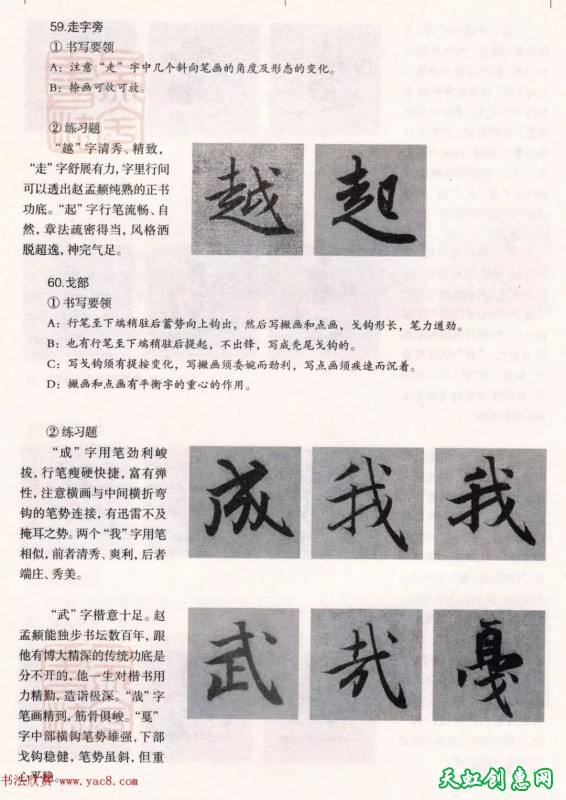 59.走字旁
① 书写要领
A：注意“走”字中几个斜向笔画的角度及形态的变化。
B：捺画可收可放。
② 练习题
“越”字清秀、精致，
“走”字舒展有力，字里行间
可以透出赵孟頫纯熟的正书
功底。“起”字行笔流畅、自
然，章法疏密得当，风格洒
脱超逸，神完气足。
越
起
60.戈部
① 书写要领
A：行笔至下端稍驻后蓄势向上钩出，然后写撇画和点画，戈钩形长，笔力遒劲。
B：也有行笔至下端稍驻后提起，不出锋，写成秃尾戈钩的。
C：写戈钩须有提按变化，写撇画须委婉而劲利，写点画须疾速而沉着。
D：撇画和点画有平衡字的重心的作用。
② 练习题
“成”字用笔劲利峻
拔，行笔瘦硬快捷，富有弹
性，注意横画与中间横折弯
钩的笔势连接，有迅雷不及
掩耳之势。两个“我”字用笔
相似，前者清秀、爽利，后者
端庄、秀美。
成
我
我
“武”字楷意十足。赵
孟頫能独步书坛数百年，跟
他有博大精深的传统功底是
分不开的，他一生对楷书用
力精勤，造诣极深。“哉”字
笔画精到，筋骨俱峻。“戛”
字中部横钩笔势雄强，下部
戈钩稳健，笔势虽斜，但重
心平稳。
武
哉
戛
书法欣赏 www.yac8.com
天虹创意网